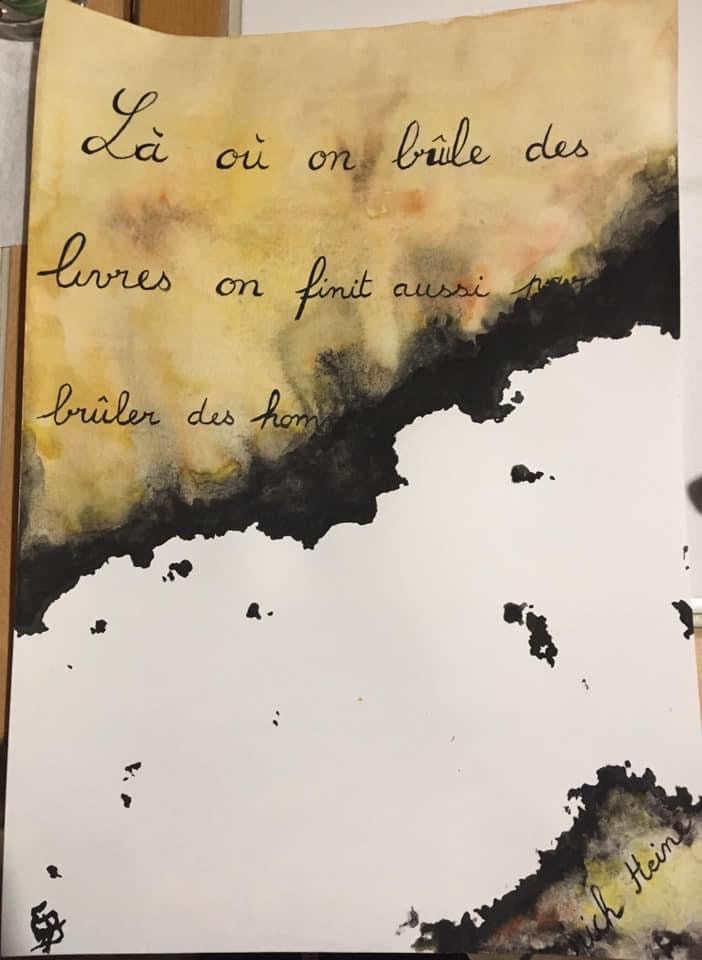 Là où on brûle des
livres on finit aussi pour
brûler des hom
nich Heine